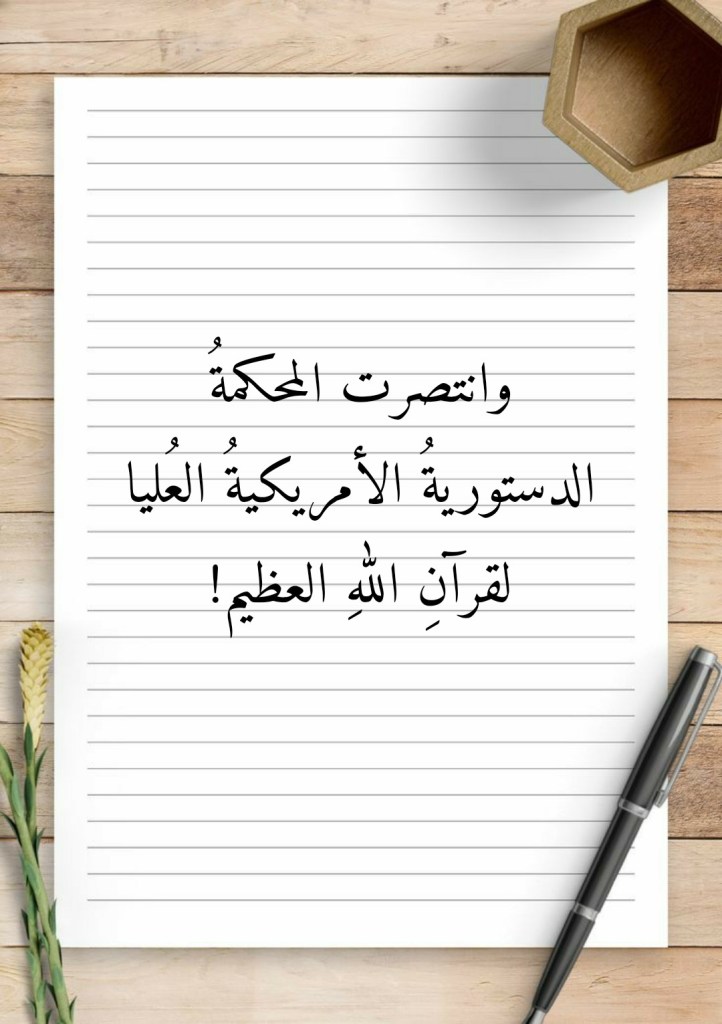 وانتصرت المحكمةُ
الدستوريةُ الأمريكيةُ العُليا
لقرآنِ اللهِ العظيم!